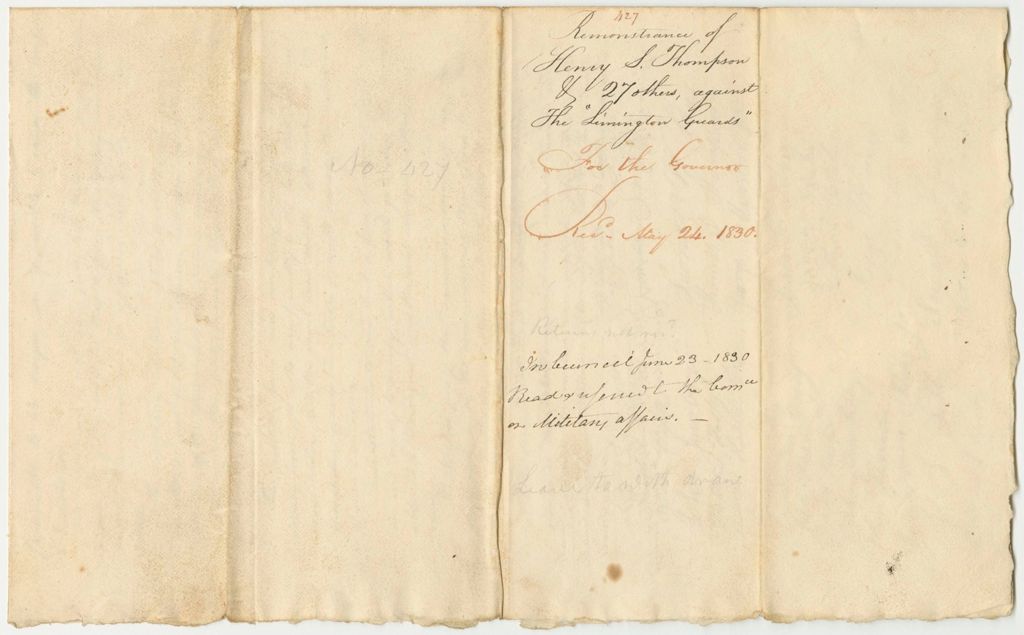 No 427
427
Remonstrance of
Henry S. Thompson
& 27 others, against
The "Limington Guards"
For the Governor
Recd. May 24. 1830.
Return not recd
In Council June 23 - 1830
Read & referred to the Comee
on Military affairs. —
Leave to withdraw